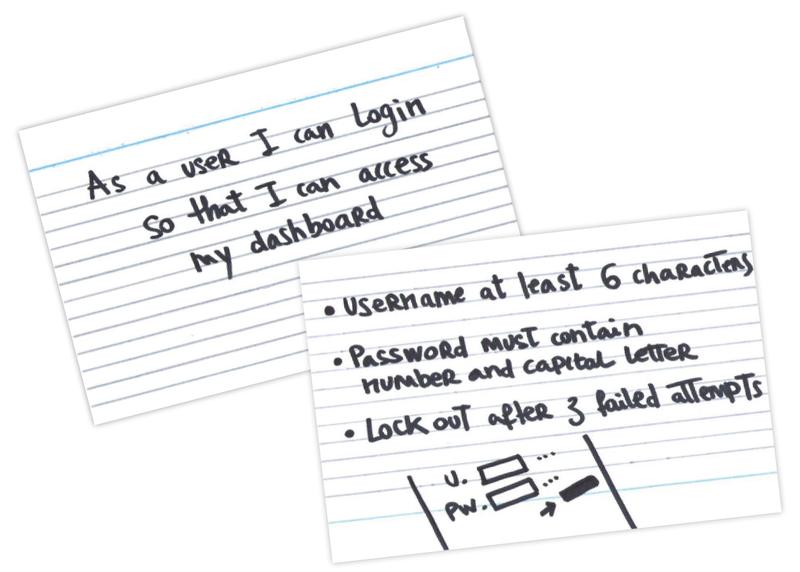 As a user I can Login
so that I can access
my dashboard
• Username at least 6 characters
• Password must contain
number and capital letter
• Lock out after 3 failed attempts
U. ...
PW. ...